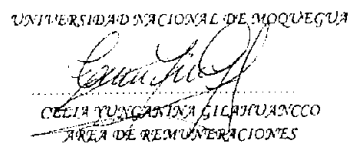 UNIVERSIDAD NACIONAL DE MOQUEGUA
CELIA YUNGANINA GILAHUANCCO
AREA DE REMUNERACIONES